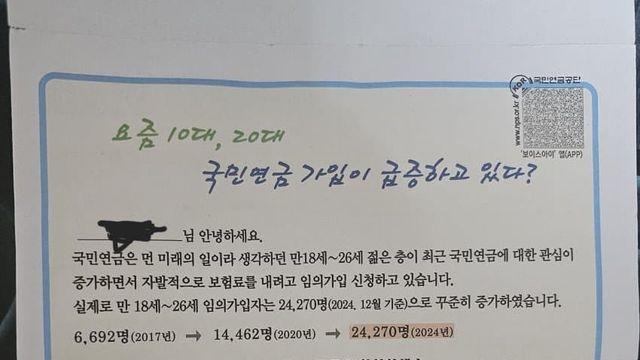 국민연금공단
www.nps.or.kr
'보이스아이' 앱(APP)
요즘 10대, 20대
국민연금 가입이 급증하고 있다?
님 안녕하세요.
국민연금은 먼 미래의 일이라 생각하던 만18세~26세 젊은 층이 최근 국민연금에 대한 관심이
증가하면서 자발적으로 보험료를 내려고 임의가입 신청하고 있습니다.
실제로 만 18세~26세 임의가입자는 24,270명(2024, 12월 기준)으로 꾸준히 증가하였습니다.
6,692명(2017년) → 14,462명(2020년) → 24,270명(2024년)